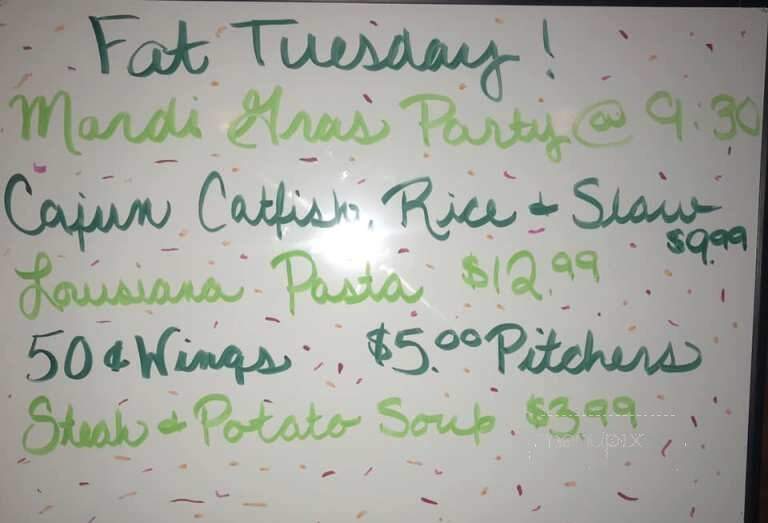 Fat Tuesday!
Mardi Gras Party @ 9:30
Cajun Catfish, Rice & Slaw
$9.99
Louisiana Pasta $12.99
50¢ Wings $5.00 Pitchers
Steak & Potato Soup $3.99
menupix